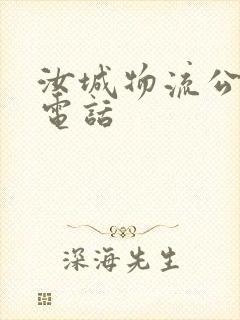 汝城物流公
電話
深海先生